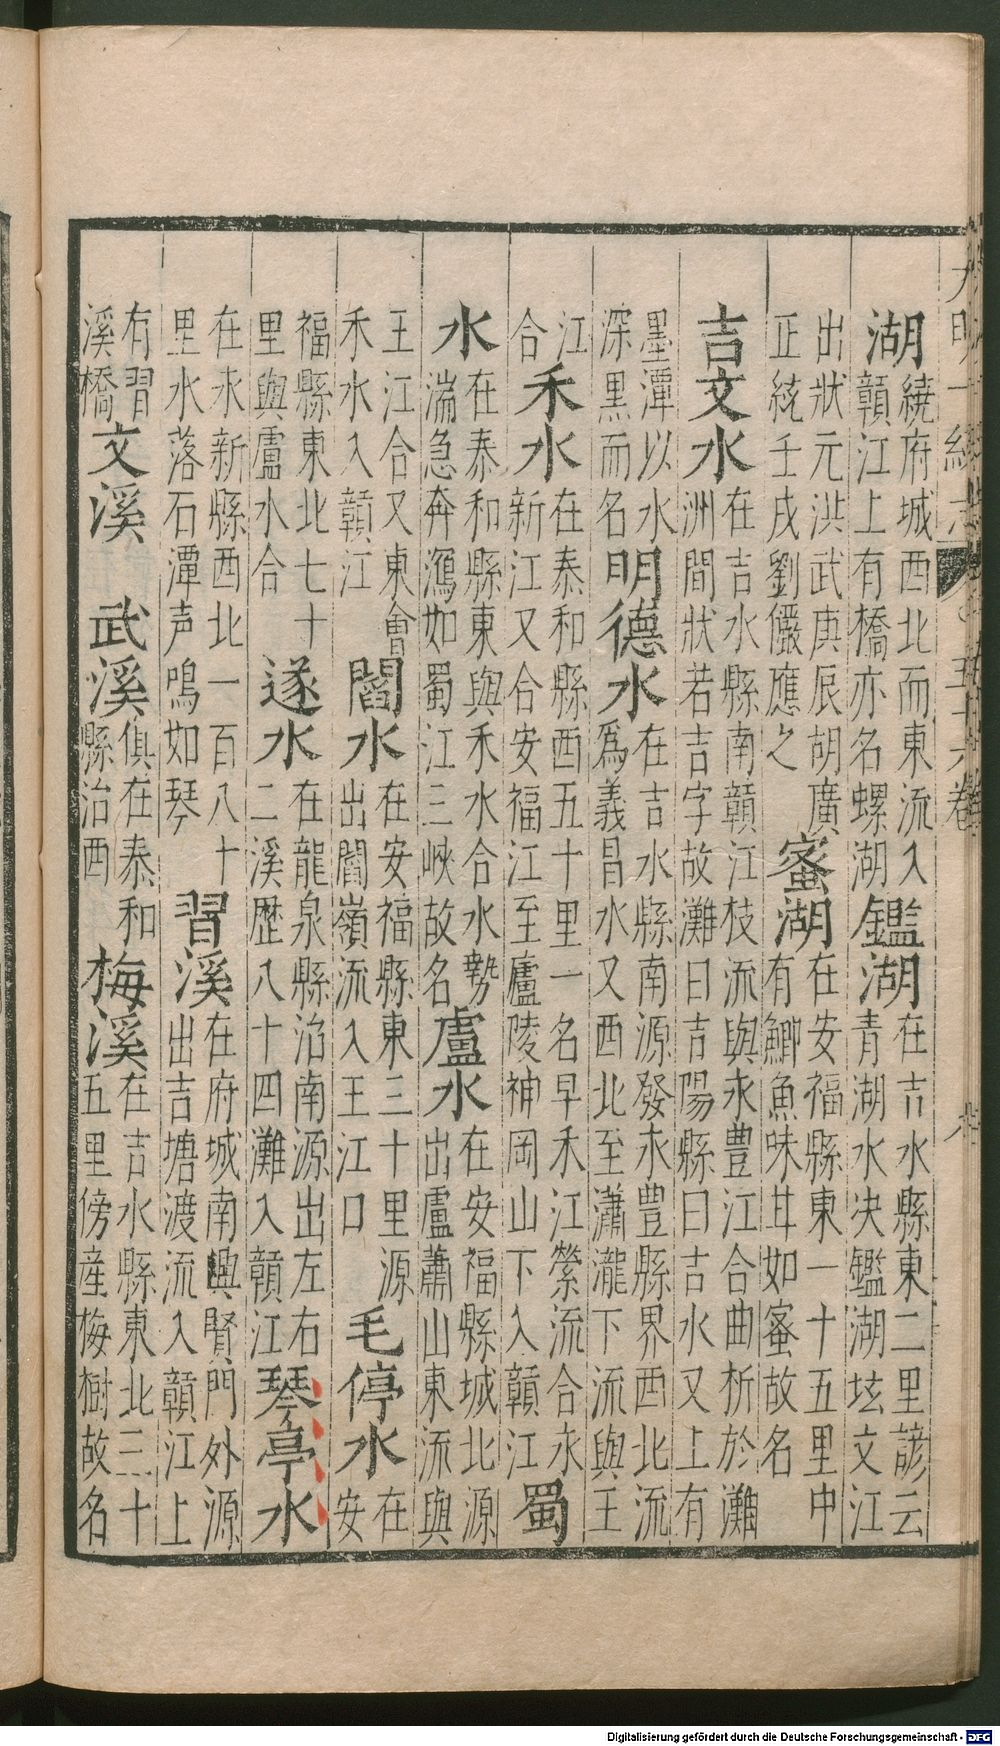 大明一統志 五十六卷
湖繞府城西北而東流入贛江上有橋亦名螺湖鑑湖在吉水縣東二里諺云青湖水决鑑湖坺文江
出狀元洪武庚辰胡廣正統壬戌劉儼應之蜜湖在安福縣東一十五里中有鯽魚味甘如蜜故名
吉文水在吉水縣南贛江枝流與永豐江合曲折於灘洲間狀若吉字故灘曰吉陽縣曰吉水又上有
墨潭以水深黑而名明德水在吉水縣南源發永豐縣界西北流爲義昌水又西北至瀟瀧下流與王
江合禾水在泰和縣西五十里一名早禾江縈流合永新江又合安福江至廬陵神岡山下入贛江蜀
水在泰和縣東與禾水合水勢湍急奔瀉如蜀江三峽故名盧水在安福縣城北源出盧蕭山東流與
王江合又東會禾水入贛江閻水在安福縣東三十里源出閻嶺流入王江口毛停水在安
福縣東北七十里與盧水合遂水在龍泉縣治南源出左右二溪歷八十四灘入贛江琴亭水
在永新縣西北一百八十里水落石潭声鳴如琴習溪在府城南興賢門外源出吉塘渡流入贛江上
有習溪橋文溪 武溪俱在泰和縣治西梅溪在吉水縣東北三十五里傍産梅樹故名
Digitalisierung gefördert durch die Deutsche Forschungsgemeinschaft - DFG